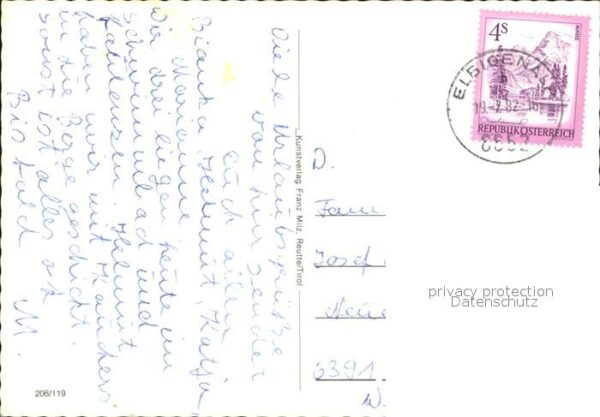 Viele Urlaubsgrüße
von hier sendet
Euch allen
Bianka, Helmut, Katja
Marianne
Wir drei liegen heute im
Schwimmbad und
faulenzen. Helmut
haben wir mit
in die Berge geschickt.
Sonst ist alles ok
Bis bald M.
Kunstverlag Franz Milz, Reutte/Tirol
206/119
4S
ALMSEE
REPUBLIK ÖSTERREICH
ELBIGENALP
19.-7.82-16
6652
D.
Fam
Josef
Neue
6391
privacy protection
Datenschutz